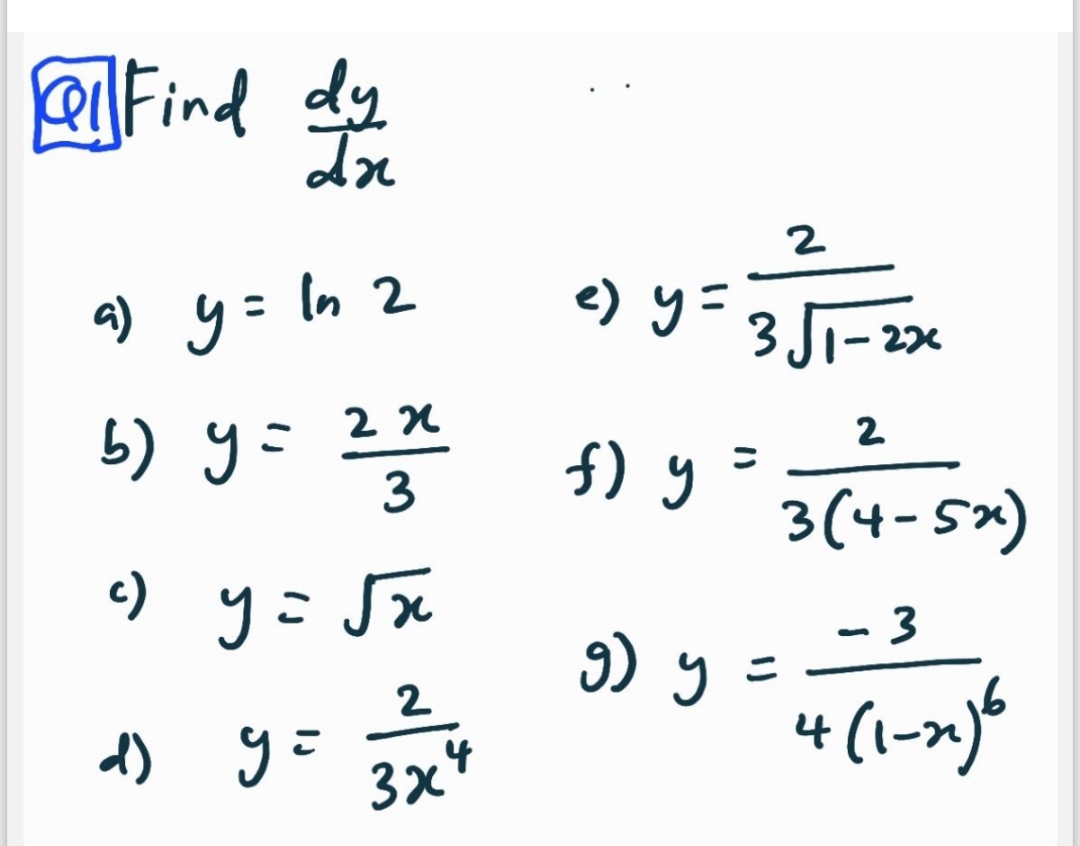 Q1 Find dy/dx
a) y = ln 2
b) y = 2x/3
c) y = √x
d) y = 2/3x⁴
e) y = 2/3√1-2x
f) y = 2/3(4-5x)
g) y = -3/4(1-x)⁶